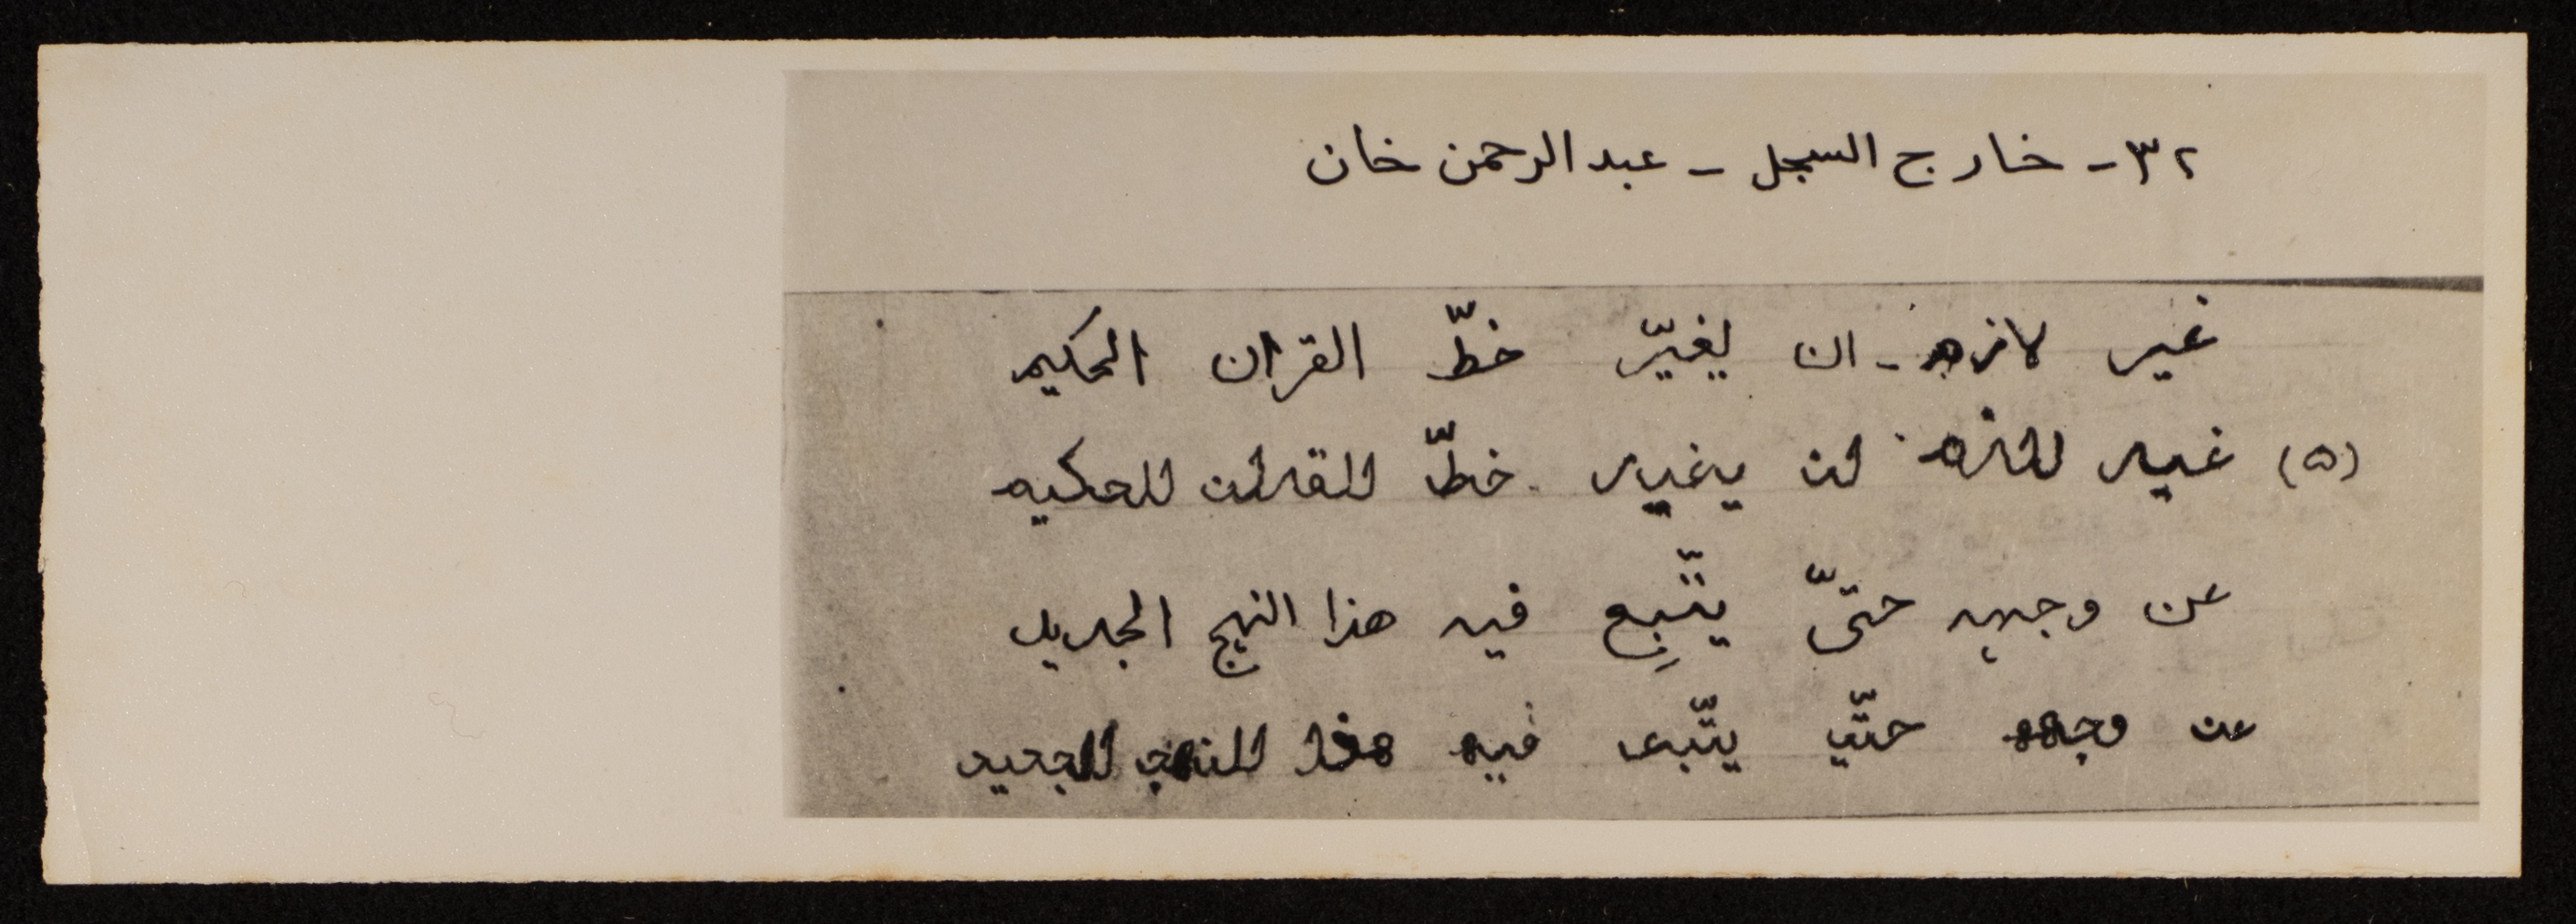 ٣٢ - خارج السجل - عبد الرحمن خان
غير لازم - ان يغيّر خطّ القران الحكيم
(٥) غير لازم ان يغير خطّ القران الحكيم
عن وجهه حتىّ يتّبِع فيه هذا النهج الجديد
عن وجهه حتّي يتّبع فيه هذا النهج الجديد